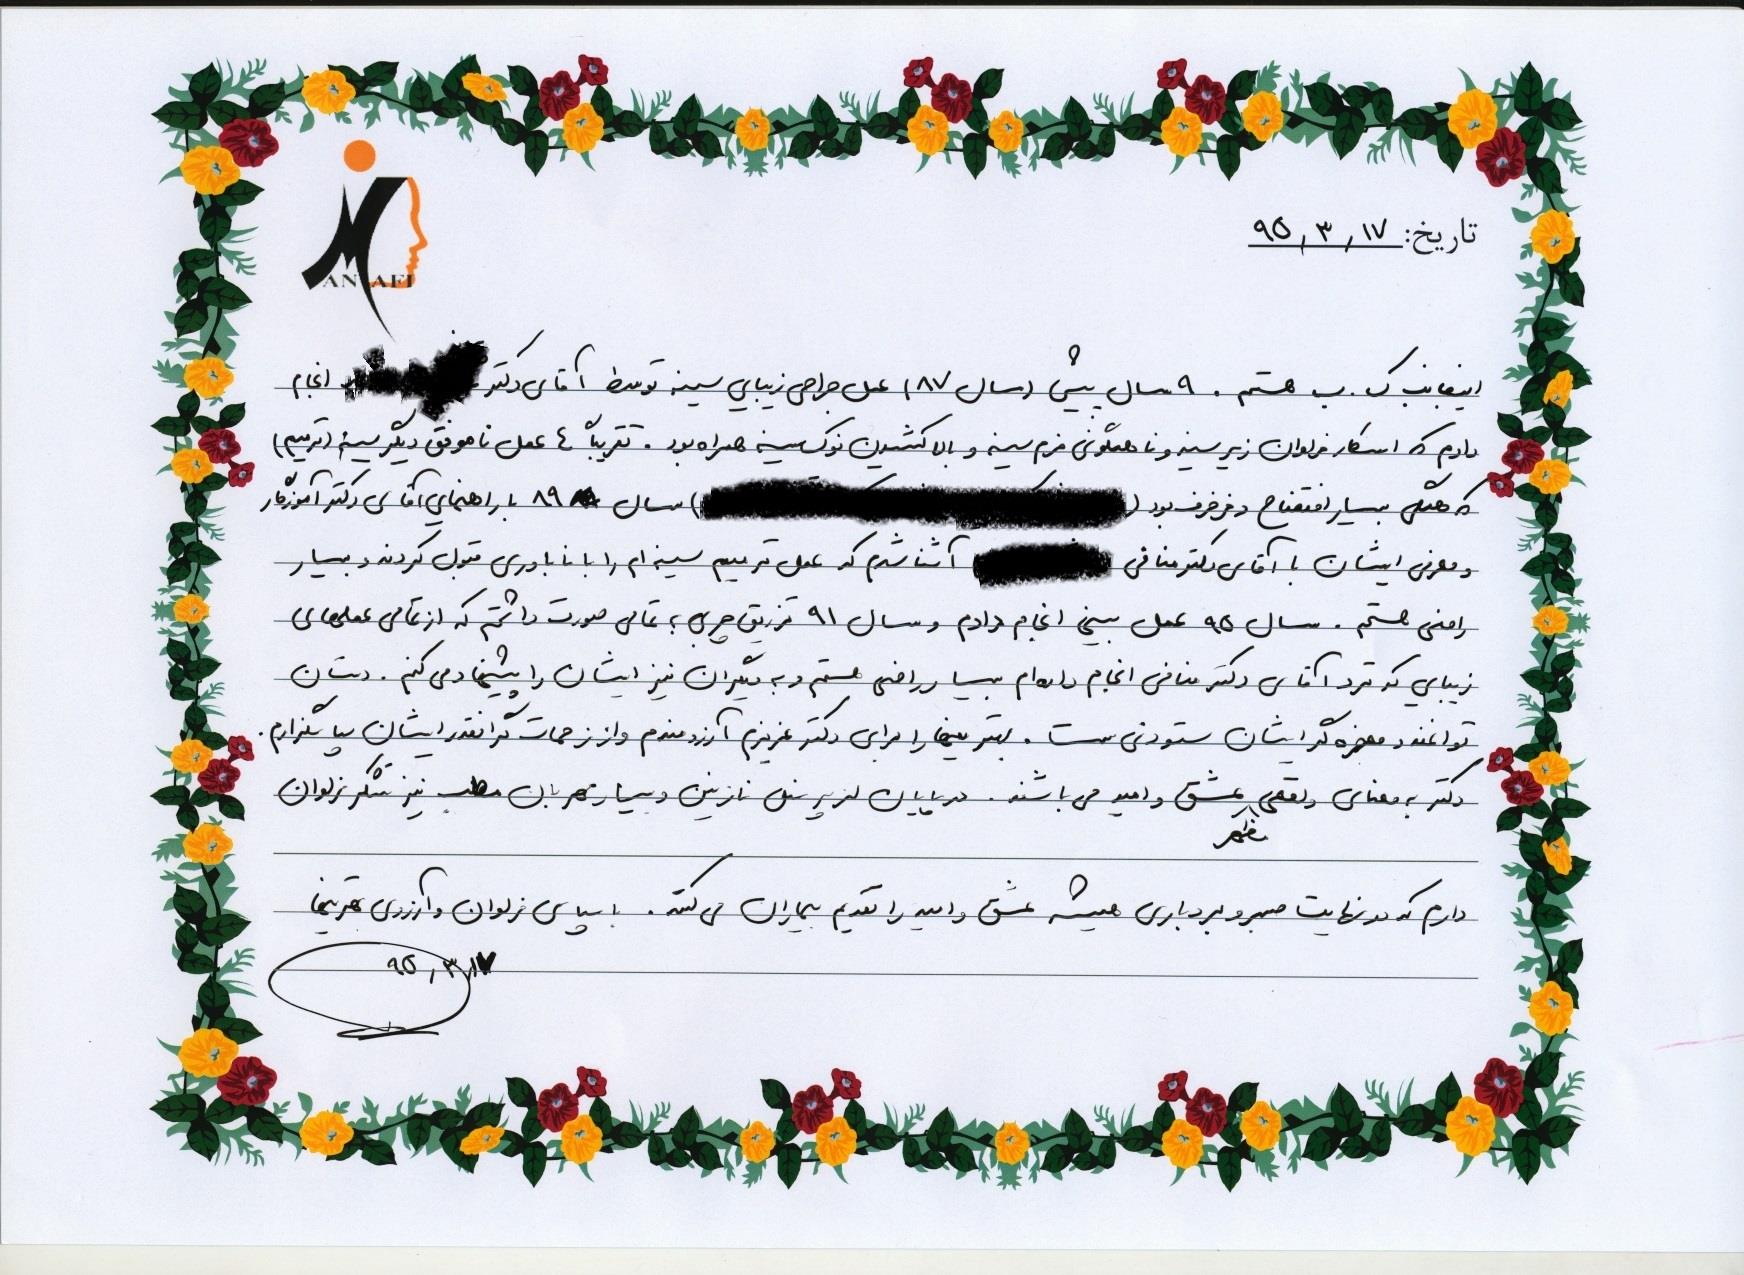 MANAFI
تاریخ: ۹۵٫۳٫۱۷
اینجانب ک.ب هستم. ۹ سال پیش (سال ۸۷) عمل جراحی زیبایی سینه توسط آقای دکتر انجام
دادم که اسکار فراوان زیر سینه و ناهمگونی فرم سینه و بالا کشیدن نوک سینه همراه بود. تقریباً ۴ عمل ناموفق دیگر سینه (ترمیم)
که همگی بسیار افتضاح و مزخرف بود ( ) سال ۸۹ با راهنمایی آقای دکتر آموزگار
و معرفی ایشان با آقای دکتر منافی آشنا شدم که عمل ترمیم سینه ام را با ناباوری قبول کردند و بسیار
راضی هستم. سال ۹۵ عمل بینی انجام دادم و سال ۹۱ تزریق چربی به تمامی صورت داشتم که از تمامی عملهای
زیبایی که نزد آقای دکتر منافی انجام داده‌ام بسیار راضی هستم و به دیگران نیز ایشان را پیشنهاد می کنم. دستان
توانمند و معجزه گر ایشان ستودنی ست. بهترینها را برای دکتر عزیزم آرزومندم و از زحمات گرانقدر ایشان سپاسگزارم.
دکتر به معنای واقعی مظهر عشق و امید می باشند. در پایان از پرسنل نازنین و بسیار مهربان مطب نیز تشکر فراوان
دارم که در نهایت صبر و بردباری همیشه عشق و امید را تقدیم بیماران می کنند. با سپاس فراوان و آرزوی بهترینها
۹۵٫۳٫۱۷